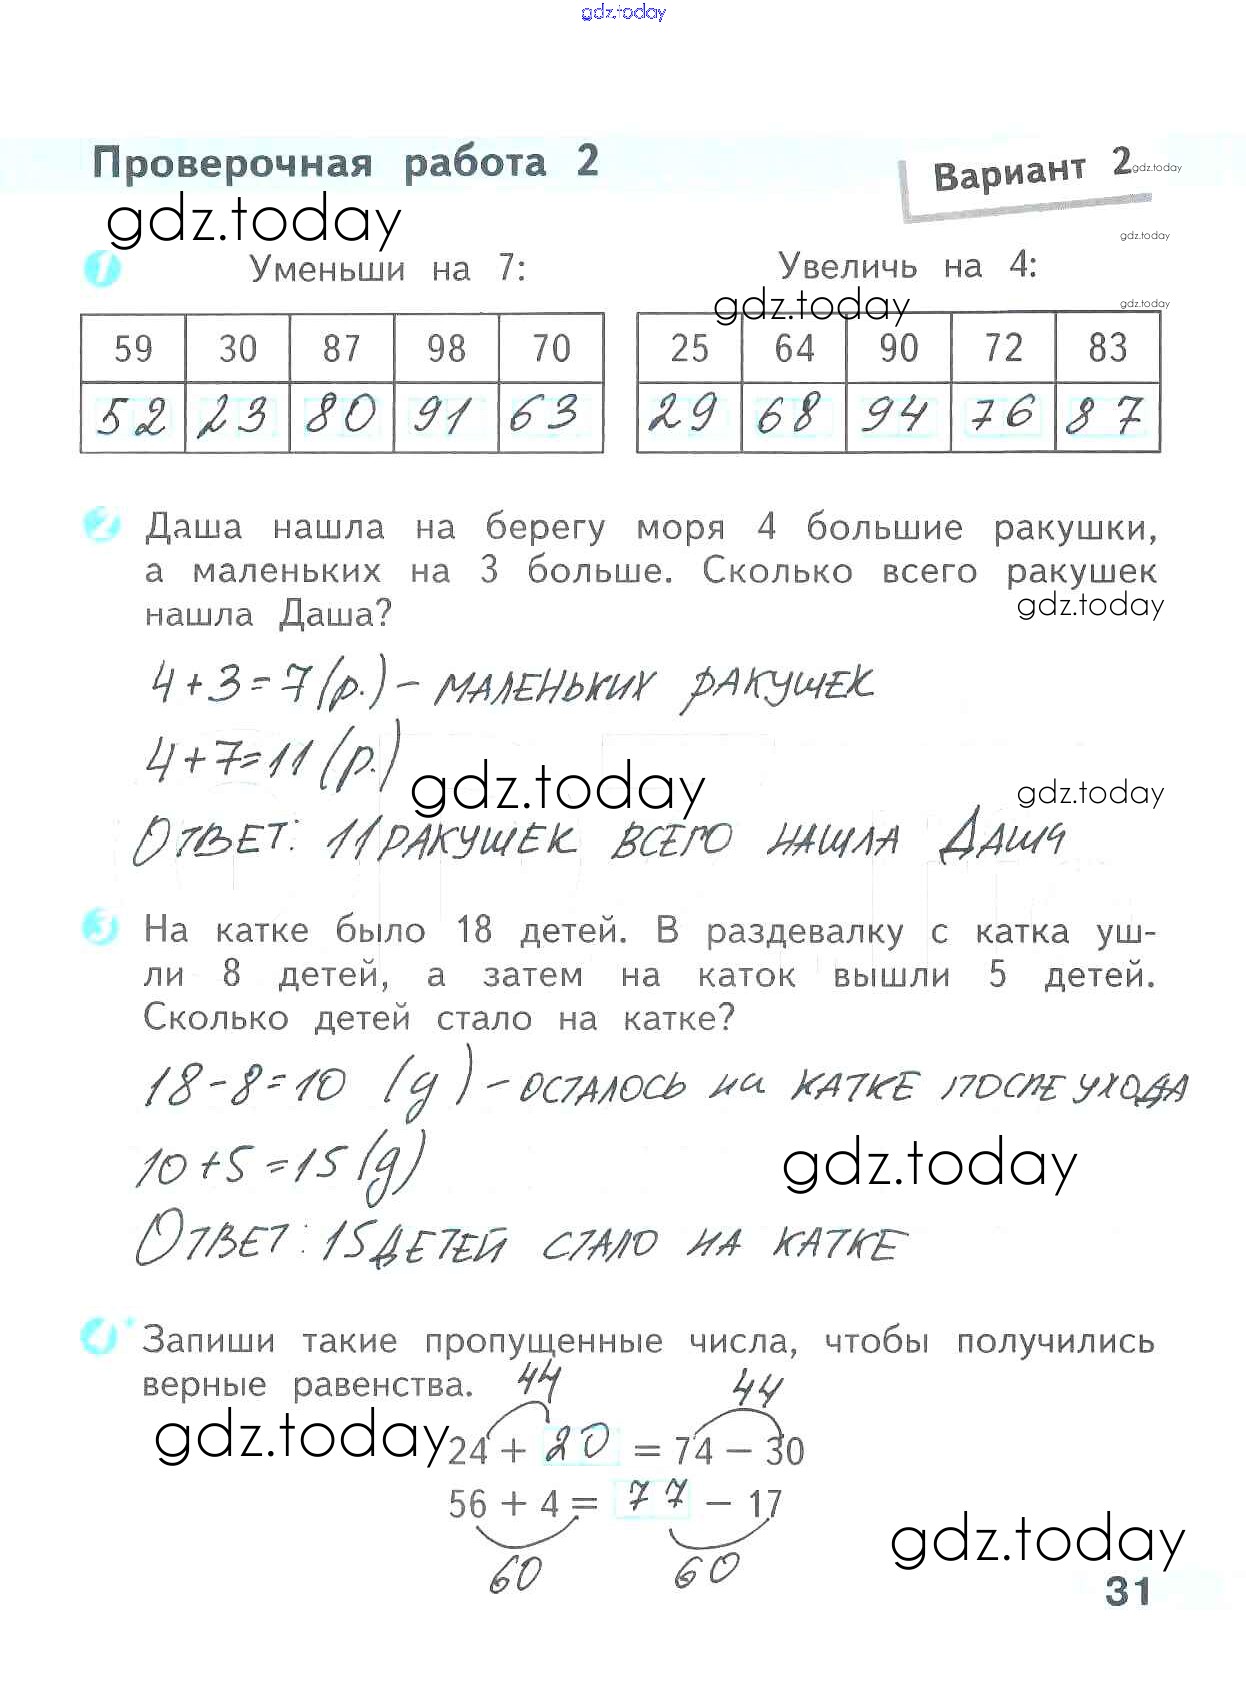 gdz.today
Проверочная работа 2
Вариант 2
gdz.today
gdz.today
gdz.today
1 Уменьши на 7:
Увеличь на 4:
gdz.today
gdz.today
59 30 87 98 70
25 64 90 72 83
52 23 80 91 63
29 68 94 76 87
2 Даша нашла на берегу моря 4 большие ракушки,
а маленьких на 3 больше. Сколько всего ракушек
нашла Даша?
gdz.today
4+3=7(р.) – МАЛЕНЬКИХ РАКУШЕК
4+7=11(р.)
gdz.today
gdz.today
ОТВЕТ: 11 РАКУШЕК ВСЕГО НАШЛА ДАША
3 На катке было 18 детей. В раздевалку с катка уш-
ли 8 детей, а затем на каток вышли 5 детей.
Сколько детей стало на катке?
18-8=10 (д) – ОСТАЛОСЬ НА КАТКЕ ПОСЛЕ УХОДА
10+5=15(д)
gdz.today
ОТВЕТ: 15 ДЕТЕЙ СТАЛО НА КАТКЕ
4* Запиши такие пропущенные числа, чтобы получились
верные равенства.
44 44
gdz.today
24 + 20 = 74 – 30
56 + 4 = 77 – 17
60 60
gdz.today
31